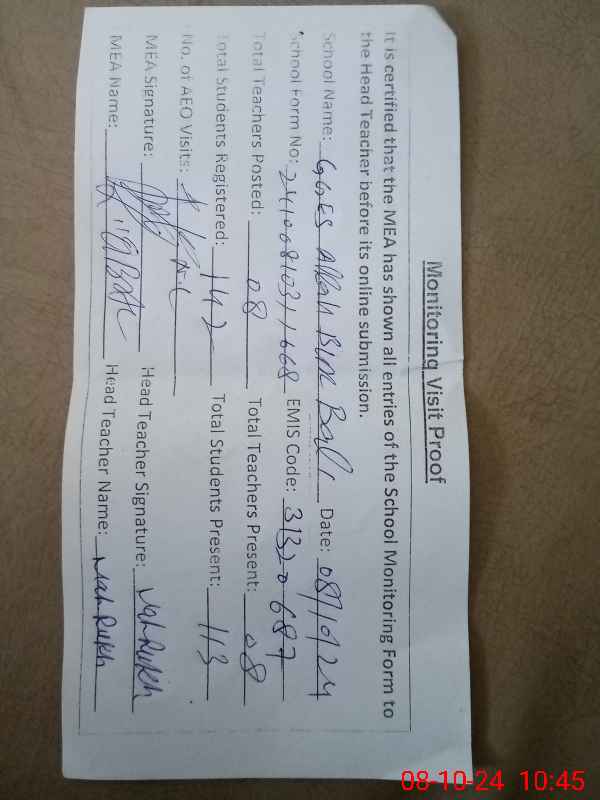 Monitoring Visit Proof
It is certified that the MEA has shown all entries of the School Monitoring Form to
the Head Teacher before its online submission.
School Name: GGES Allah Bux Bali Date: 08/10/24
School Form No: 24100810311668 EMIS Code: 31320687
Total Teachers Posted: 08 Total Teachers Present: 08
Total Students Registered: 142 Total Students Present: 113
No. of AEO Visits:
MEA Signature: Head Teacher Signature: Mah Rukh
MEA Name: Head Teacher Name: Mah Rukh
08-10-24 10:45